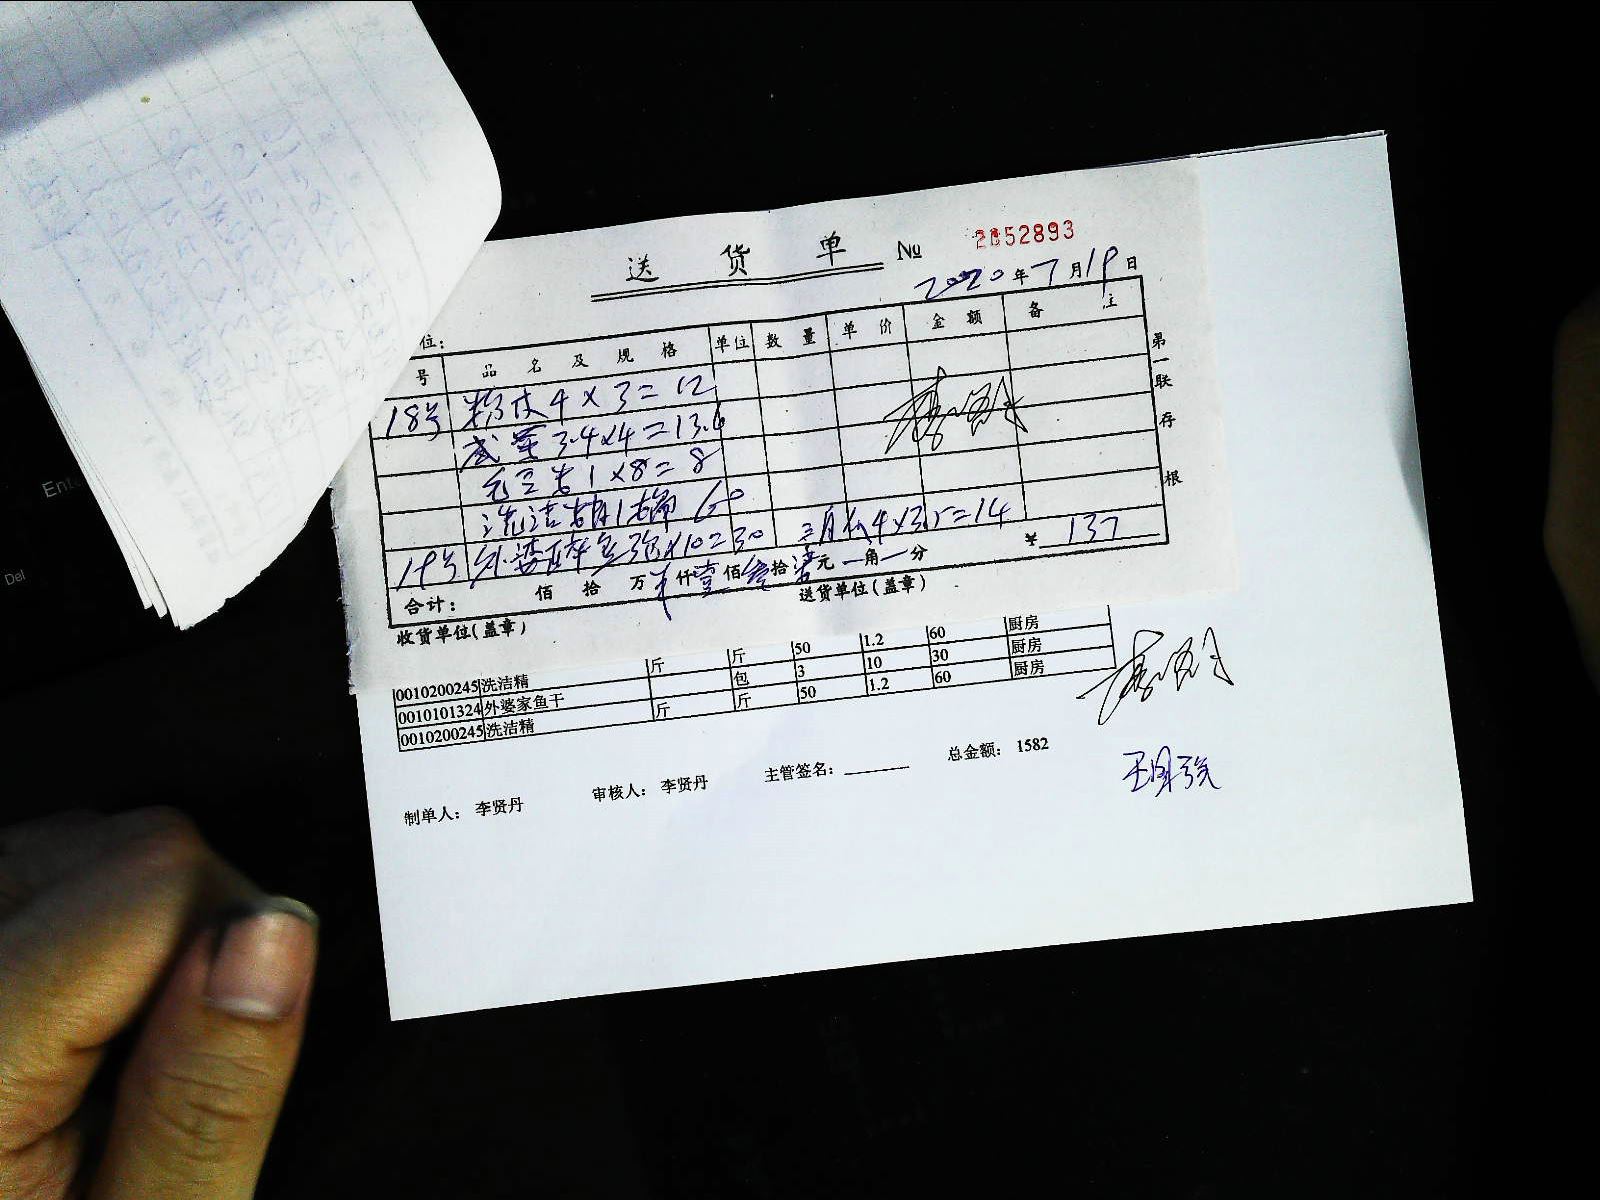 送 货 单 № 2852893
2020年7月19日
位:
号 品名及规格 单位 数量 单价 金额 备注
18号 粉皮 4×3=12
咸菜 3.4×4=13.6
毛豆 1×8=8
洗洁精 1 60
19号 外婆 3包×10=30 4×3.5=14
合计: 佰 拾 万 仟壹佰叁拾柒元 角 分 ¥137
收货单位(盖章) 送货单位(盖章)
第一联 存根
0010200245 洗洁精 斤 斤 50 1.2 60 厨房
0010101324 外婆家鱼干 包 3 10 30 厨房
0010200245 洗洁精 斤 斤 50 1.2 60 厨房
制单人: 李贤丹 审核人: 李贤丹 主管签名: 总金额: 1582
Del